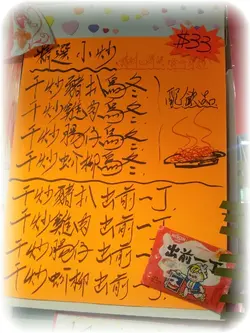 精選小炒
#33
干炒豬扒烏冬
干炒雞肉烏冬
干炒腸仔烏冬
干炒蚧柳烏冬
配飲品
干炒豬扒出前一丁
干炒雞肉出前一丁
干炒腸仔出前一丁
干炒蚧柳出前一丁
出前一丁